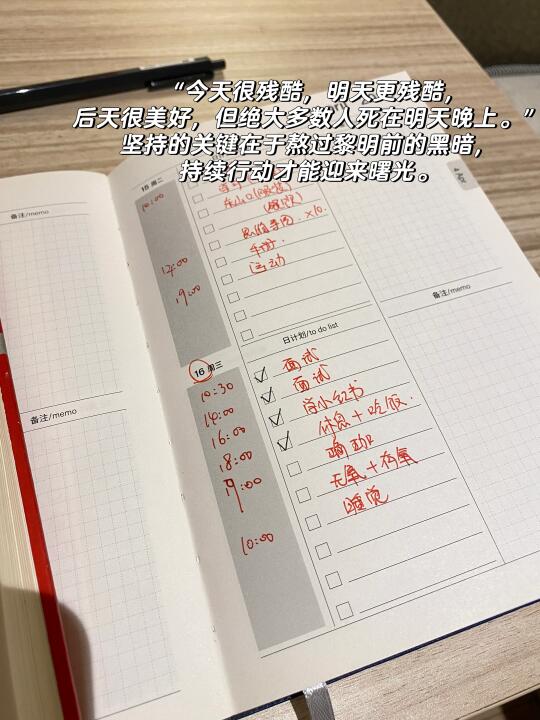 “今天很残酷，明天更残酷，
后天很美好，但绝大多数人死在明天晚上。”
坚持的关键在于熬过黎明前的黑暗，
持续行动才能迎来曙光。
15 周二
10:00
思维导图. x10.
手游.
运动
17:00
19:00
备注/memo
备注/memo
备注/memo
日计划/to do list
16 周三
面试
面试
休息+吃饭.
瑜珈
无氧+有氧
睡觉
10:30
14:00
16:00
18:00
19:00
10:00